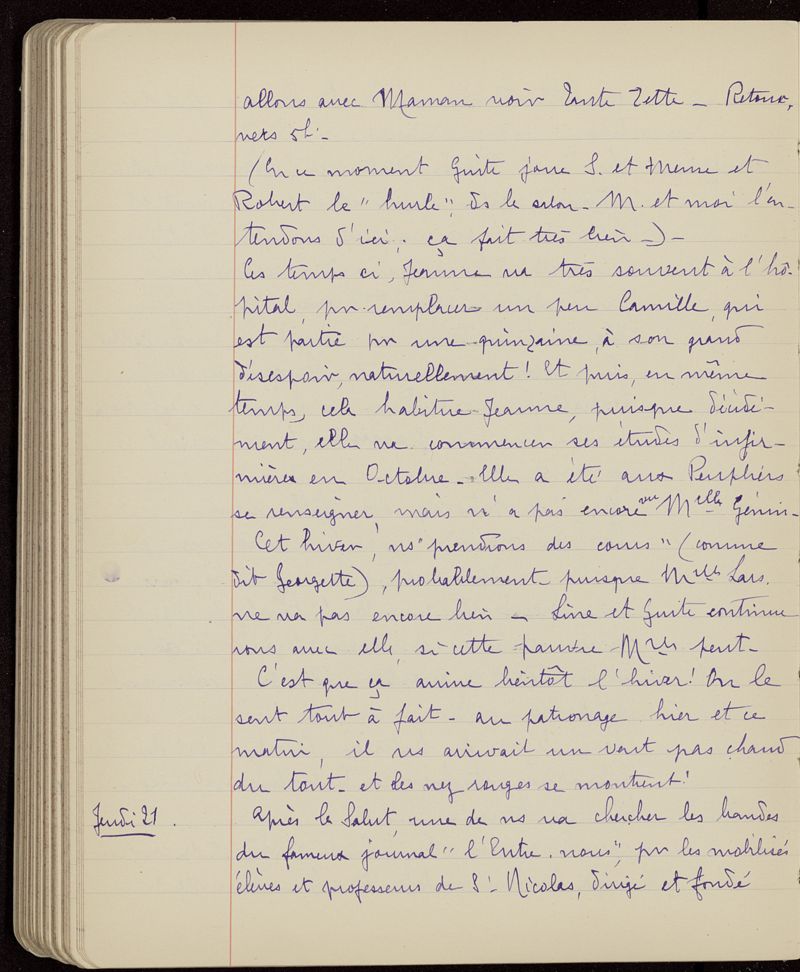 allons avec Maman voir Tante Zette – Retour,
vers 5h –
(En ce moment Guite joue S. et Meme et
Robert le "hurle", ds le salon – M. et moi l'en-
tendons d'ici ; ça fait très bien –) –
Ces temps ci, Jeanne va très souvent à l'hô-
pital, pr remplacer un peu Camille, qui
est partie pr une quinzaine, à son grand
désespoir, naturellement ! Et puis, en même
temps, cela habitue Jeanne, puisque décidé-
ment, elle va commencer ses études d'infir-
mières en Octobre – Elle a été aux Peupliers
se renseigner, mais n'a pas encore vu Melle Génin –
Cet hiver, ns "prendrons des cours" (comme
dit Georgette), probablement puisque Melle Lars.
ne va pas encore bien – Line et Guite continue
rons avec elle, si cette pauvre Melle peut –
C'est que ça arrive bientôt l'hiver ! On le
sent tout à fait – au patronage hier et ce
matin, il ns arrivait un vent pas chaud
du tout – et les nez rouges se montrent !
Jeudi 21. Après le Salut, une de ns va chercher les bandes
du fameux journal "l'Entre-nous", pr les mobilisés
élèves et professeurs de St Nicolas, dirigé et fondé